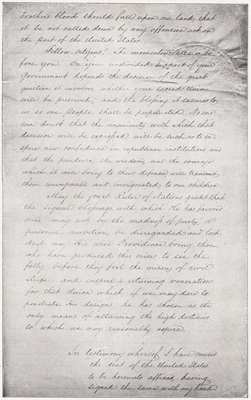 brother's blood should fall upon our land, that
it be not called down by any offensive act on
the part of the United States.
Fellow-citizens! The momentous case is be-
fore you. On your undivided support of your
government depends the decision of the great
question it involves, whether your sacred Union
will be preserved, and the blessing it secures to
us as one People shall be perpetuated. No one
can doubt that the unanimity with which that
decision will be expressed will be such as to in-
spire new confidence in republican institutions and
that the prudence, the wisdom, and the courage
which it will bring to their defence will transmit
them unimpaired and invigorated to our children.
May the Great Ruler of Nations grant that
the signal blessings with which he has favored
ours may not by the madness of party, or
personal ambition, be disregarded and lost,
and may His wise Providence bring those
who have produced this crisis to see the
folly before they feel the misery of civil
strife and inspire a returning veneration
for that Union which, if we may dare to
penetrate His designs, he has chosen as the
only means of attaining the high destinies
to which we may reasonably aspire.
In testimony whereof, I have caused
the seal of the United States
to be hereunto affixed, having
signed the same with my hand